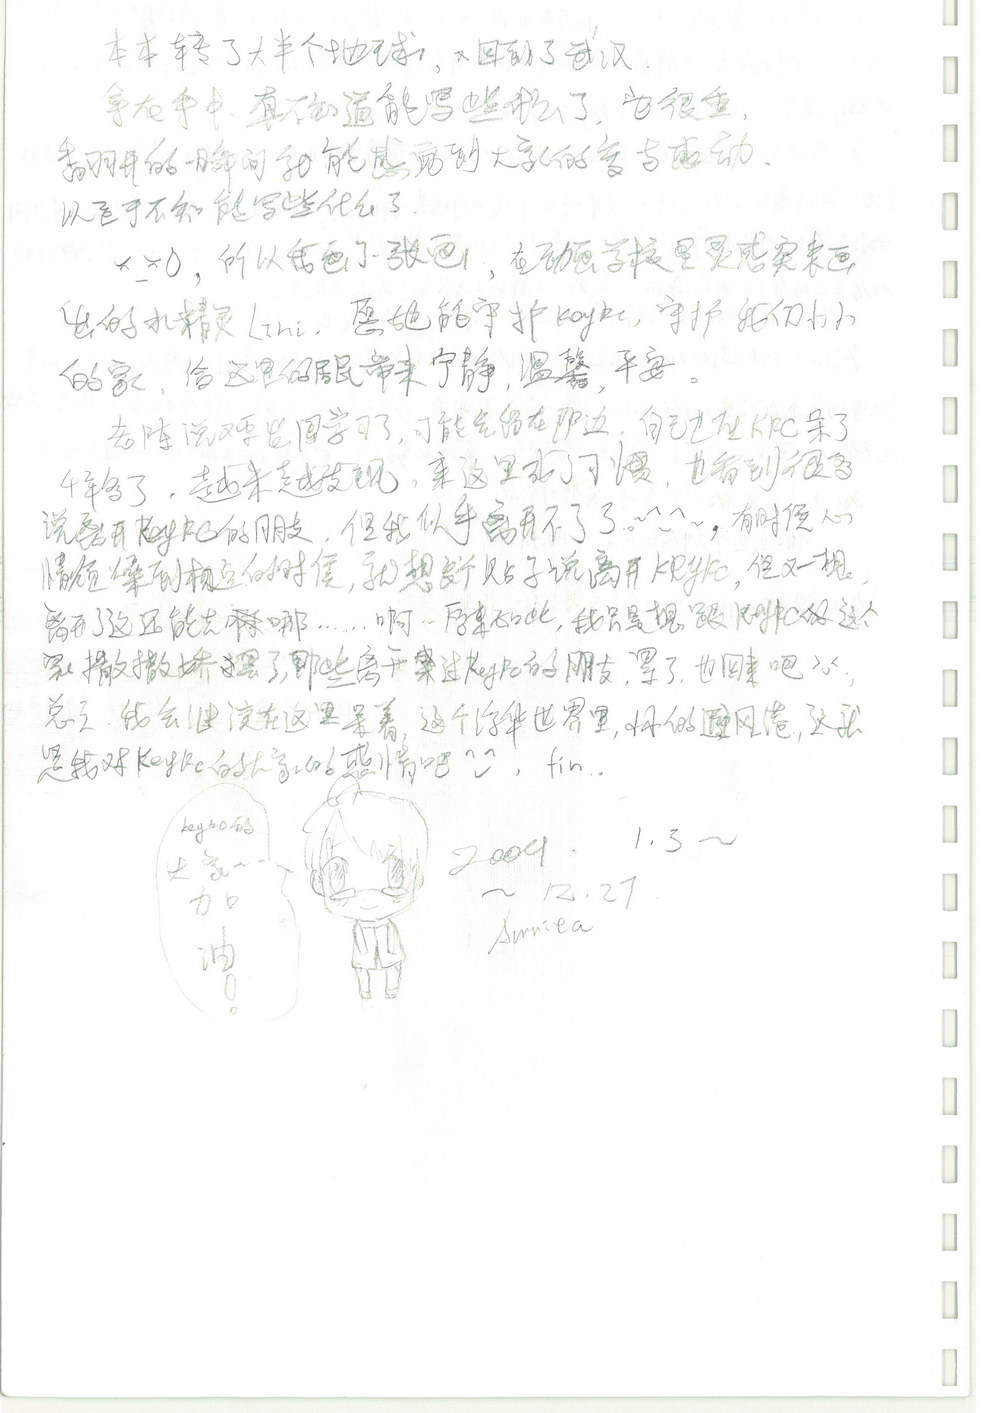 本本转了大半个地球,又回到了武汉.
拿在手中.真不知道能写些什么了,它很重,
翻开的一瞬间就能感觉到大家的爱与感动.
以至于不知能写些什么了.
×_×0,所以去画了一张画,在动画学校里灵感突来画
出的小精灵Lini.愿她能守护keyfc,守护我们小小
的家,给这里的居民带来宁静,温馨,平安。
去年说要出国学习了,可能会留在那边.自己也在KFC呆了
4年多了.越来越发现,来这里成了习惯,也看到很多
说离开KeyFC的朋友.但我似乎离开不了了。~^_^~,有时候心
情烦燥到极点的时候,就想发个贴子说离开KEYFC,但又一想,
离开了这还能去哪……啊…原来如此,我只是想跟KeyFC的这个
家撒撒娇罢了,那些离开过KeyFC的朋友,累了.也回来吧^^,
总之.我会继续在这里呆着,这个浮华世界里,小小的避风港,这就
是我对KeyFC的大家的感情吧^_^. fin..
keyfc的
大家~~
加
油
!
2009. 1.3~
~12.27